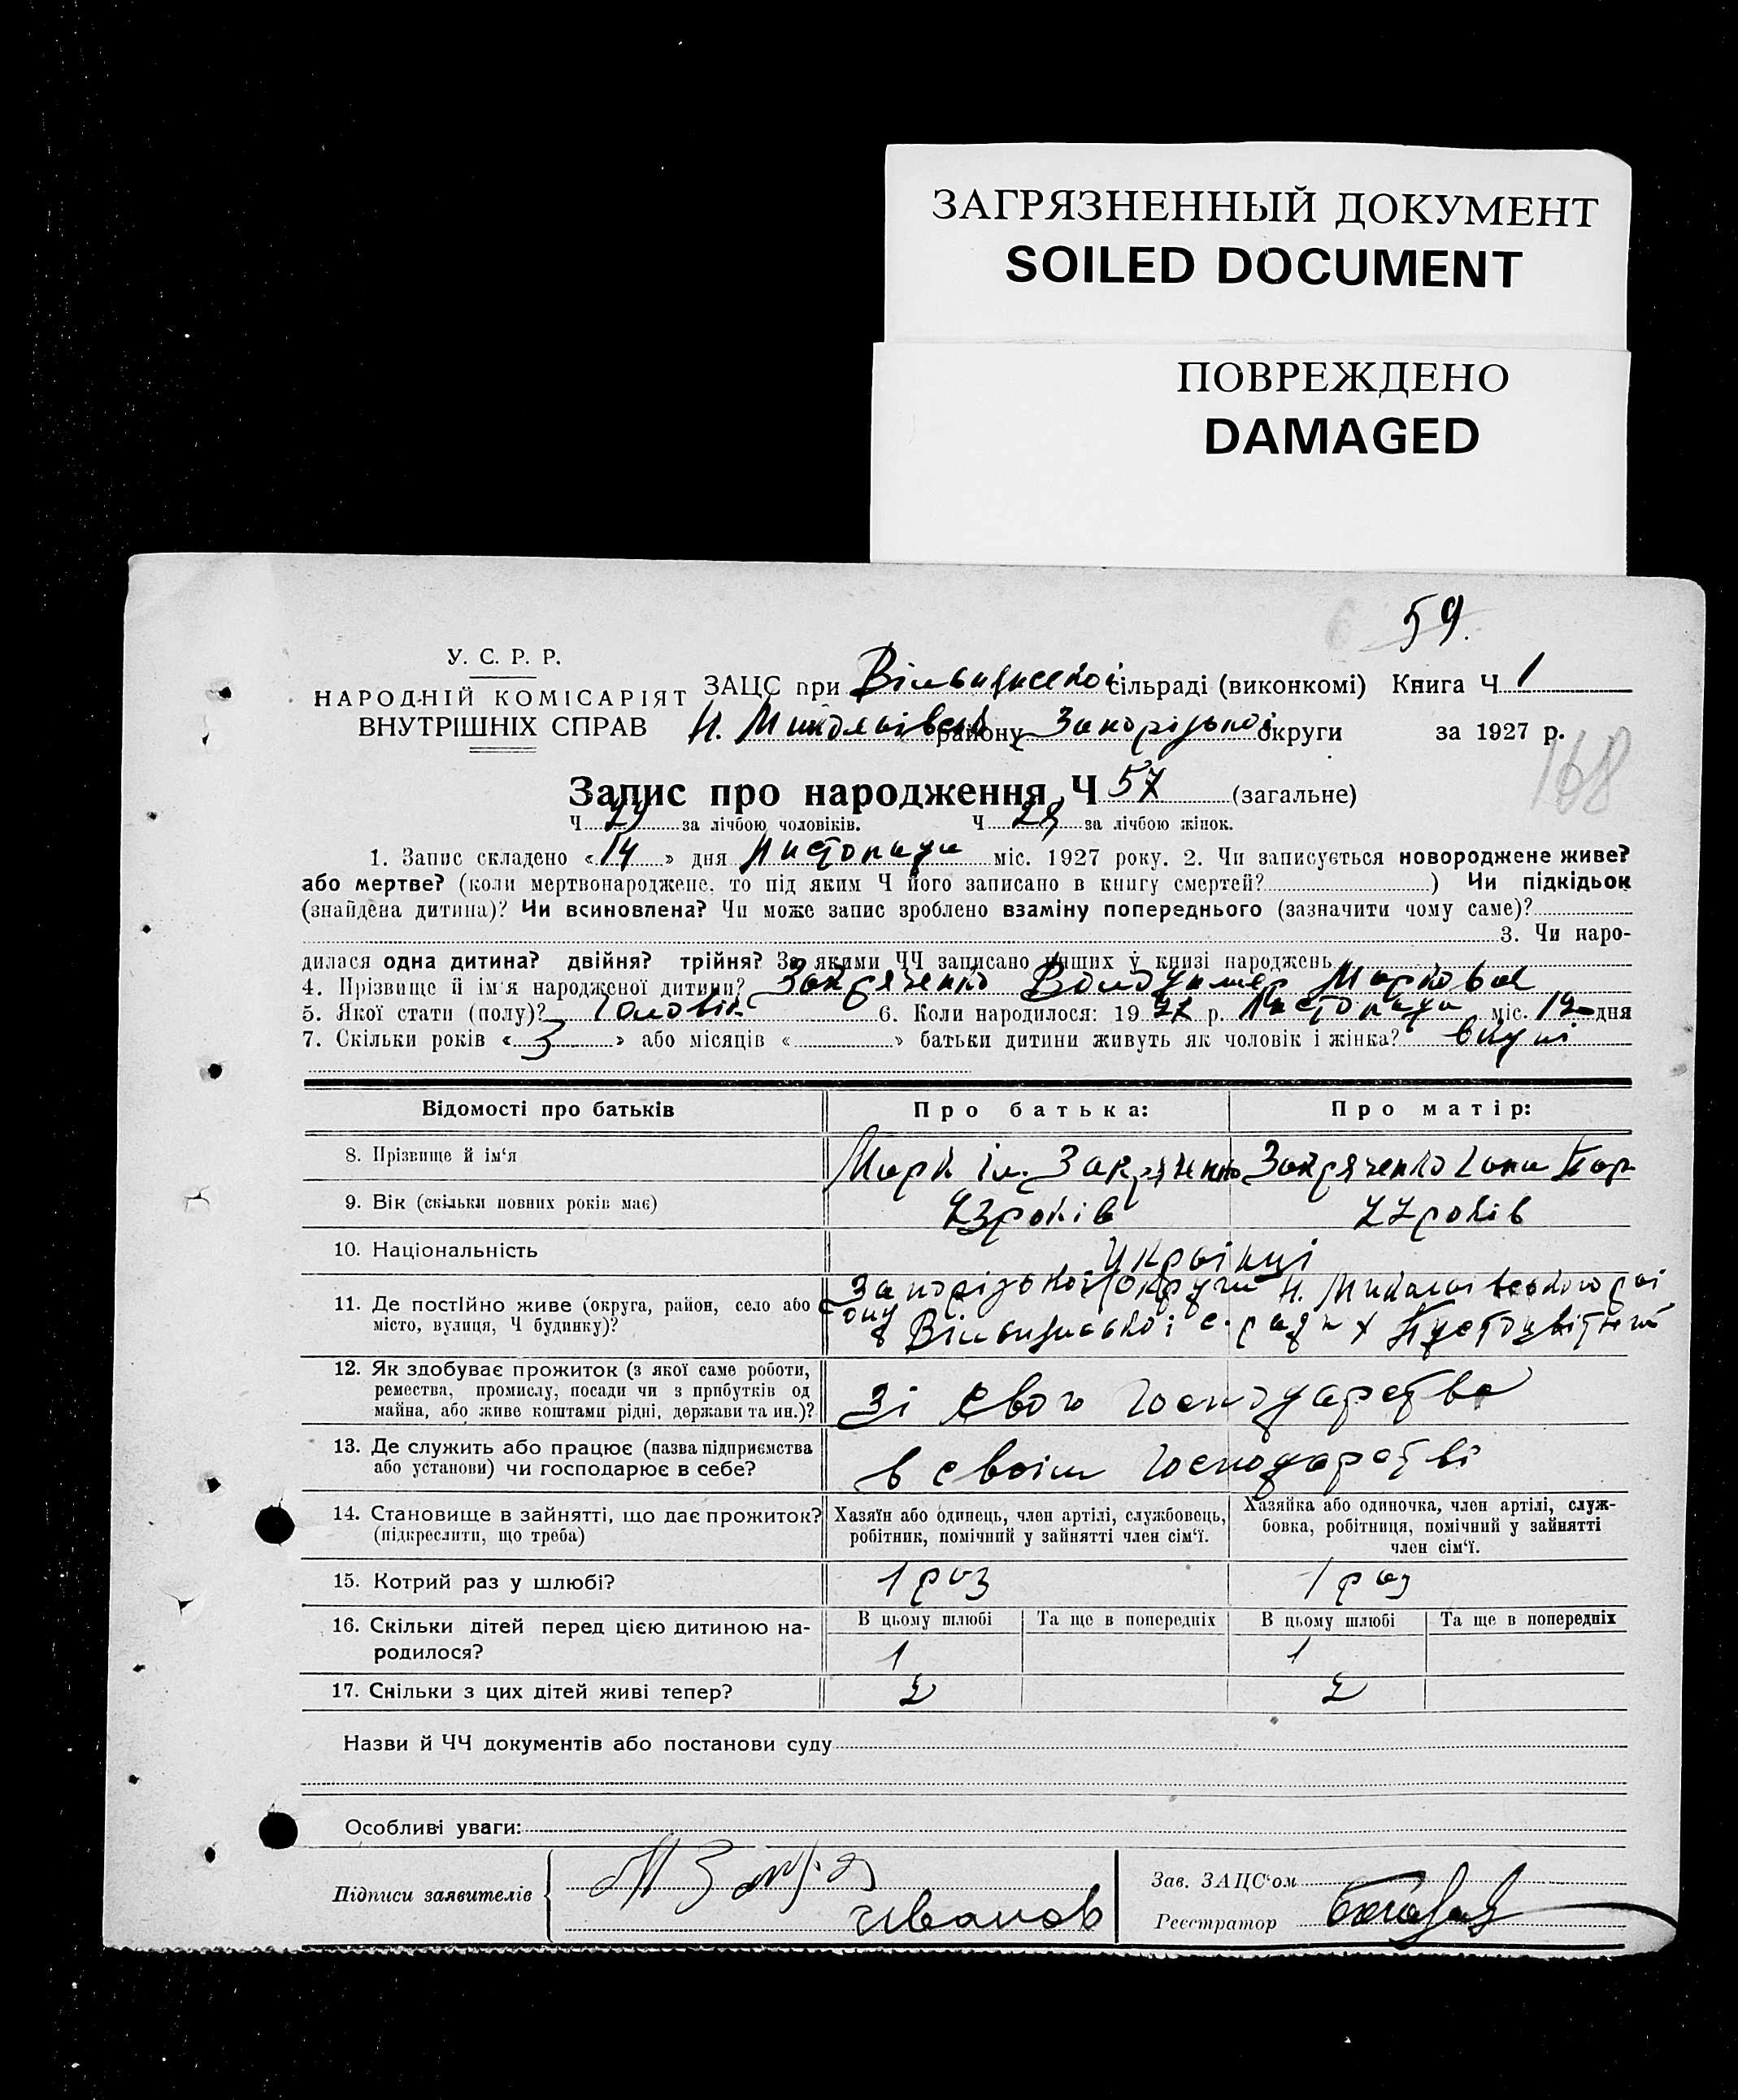 ЗАГРЯЗНЕННЫЙ ДОКУМЕНТ
SOILED DOCUMENT
ПОВРЕЖДЕНО
DAMAGED
59.
У. С. Р. Р.
НАРОДНІЙ КОМІСАРІЯТ
ВНУТРІШНІХ СПРАВ
ЗАЦС при сільраді (виконкомі) Книга Ч 1
Н. Миколаївськ району Запорізької округи за 1927 р.
168
Запис про народження Ч 57 (загальне)
Ч 29 за лічбою чоловіків. Ч 28 за лічбою жінок.
1. Запис складено «14» дня Листопада міс. 1927 року. 2. Чи записується новороджене живе?
або мертве? (коли мертвонароджене, то під яким Ч його записано в книгу смертей?) Чи підкідьок
(знайдена дитина)? Чи всиновлена? Чи може запис зроблено взаміну попереднього (зазначити чому саме)?
3. Чи наро-
дилася одна дитина? двійня? трійня? За якими ЧЧ записано инших у книзі народжень
4. Прізвище й ім'я народженої дитини? Закряченко Володимер Маркова
5. Якої стати (полу)? Чоловік 6. Коли народилося: 1927 р. Листопада міс. 12 дня
7. Скільки років «3» або місяців « » батьки дитини живуть як чоловік і жінка? вкупі
Відомості про батьків Про батька: Про матір:
8. Прізвище й ім‘я Марк Закряченко Закряченко
9. Вік (скільки повних років має) 23 років 22 років
10. Національність Українці
11. Де постійно живе (округа, район, село або місто, вулиця, Ч будинку)? Запорізької округи Н. Миколаївського рай
ону с. ради х
12. Як здобуває прожиток (з якої саме роботи,
ремества, промислу, посади чи з прибутків од
майна, або живе коштами рідні, держави та ин.)? Зі свого господарства
13. Де служить або працює (назва підприємства
або установи) чи господарює в себе? в своїм господарстві
14. Становище в зайнятті, що дає прожиток?
(підкреслити, що треба)
Хазяїн або одинець, член артілі, службовець,
робітник, помічний у зайнятті член сім‘ї.
Хазяйка або одиночка, член артілі, служ-
бовка, робітниця, помічний у зайнятті
член сім‘ї.
15. Котрий раз у шлюбі? 1 раз 1 раз
16. Скільки дітей перед цією дитиною на-
родилося?
В цьому шлюбі Та ще в попередніх В цьому шлюбі Та ще в попередніх
1 1
17. Скільки з цих дітей живі тепер? 2 2
Назви й ЧЧ документів або постанови суду
Особливі уваги:
Підписи заявителів
Иванов
Зав. ЗАЦС‘ом
Реєстратор